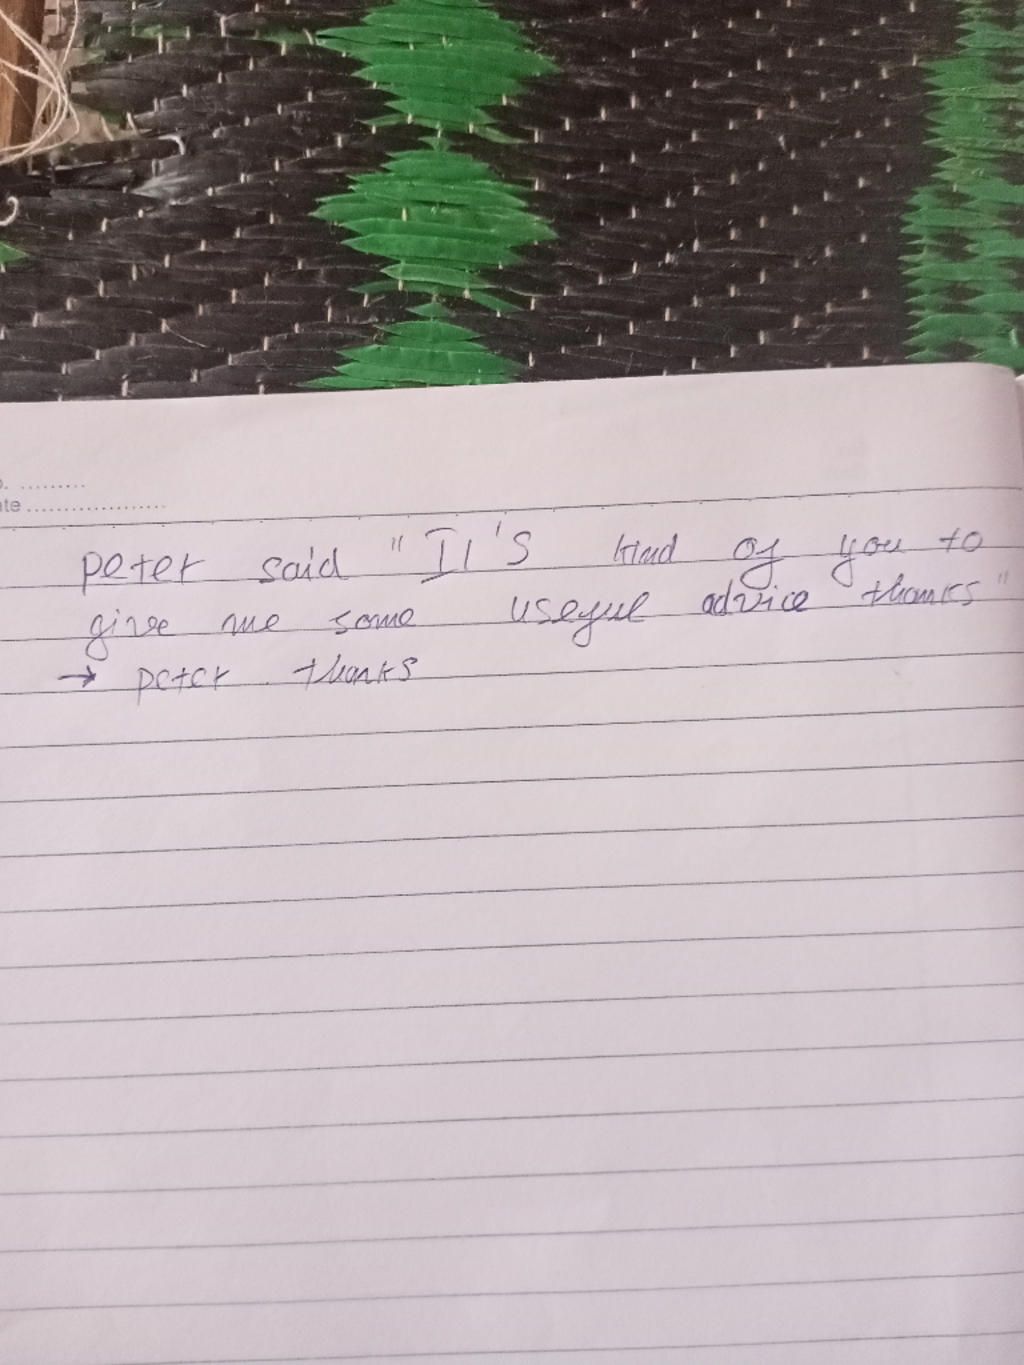 o. .........
ate ...................
peter said "It's kind of you to
give me some useful advice thanks"
→ peter thanks